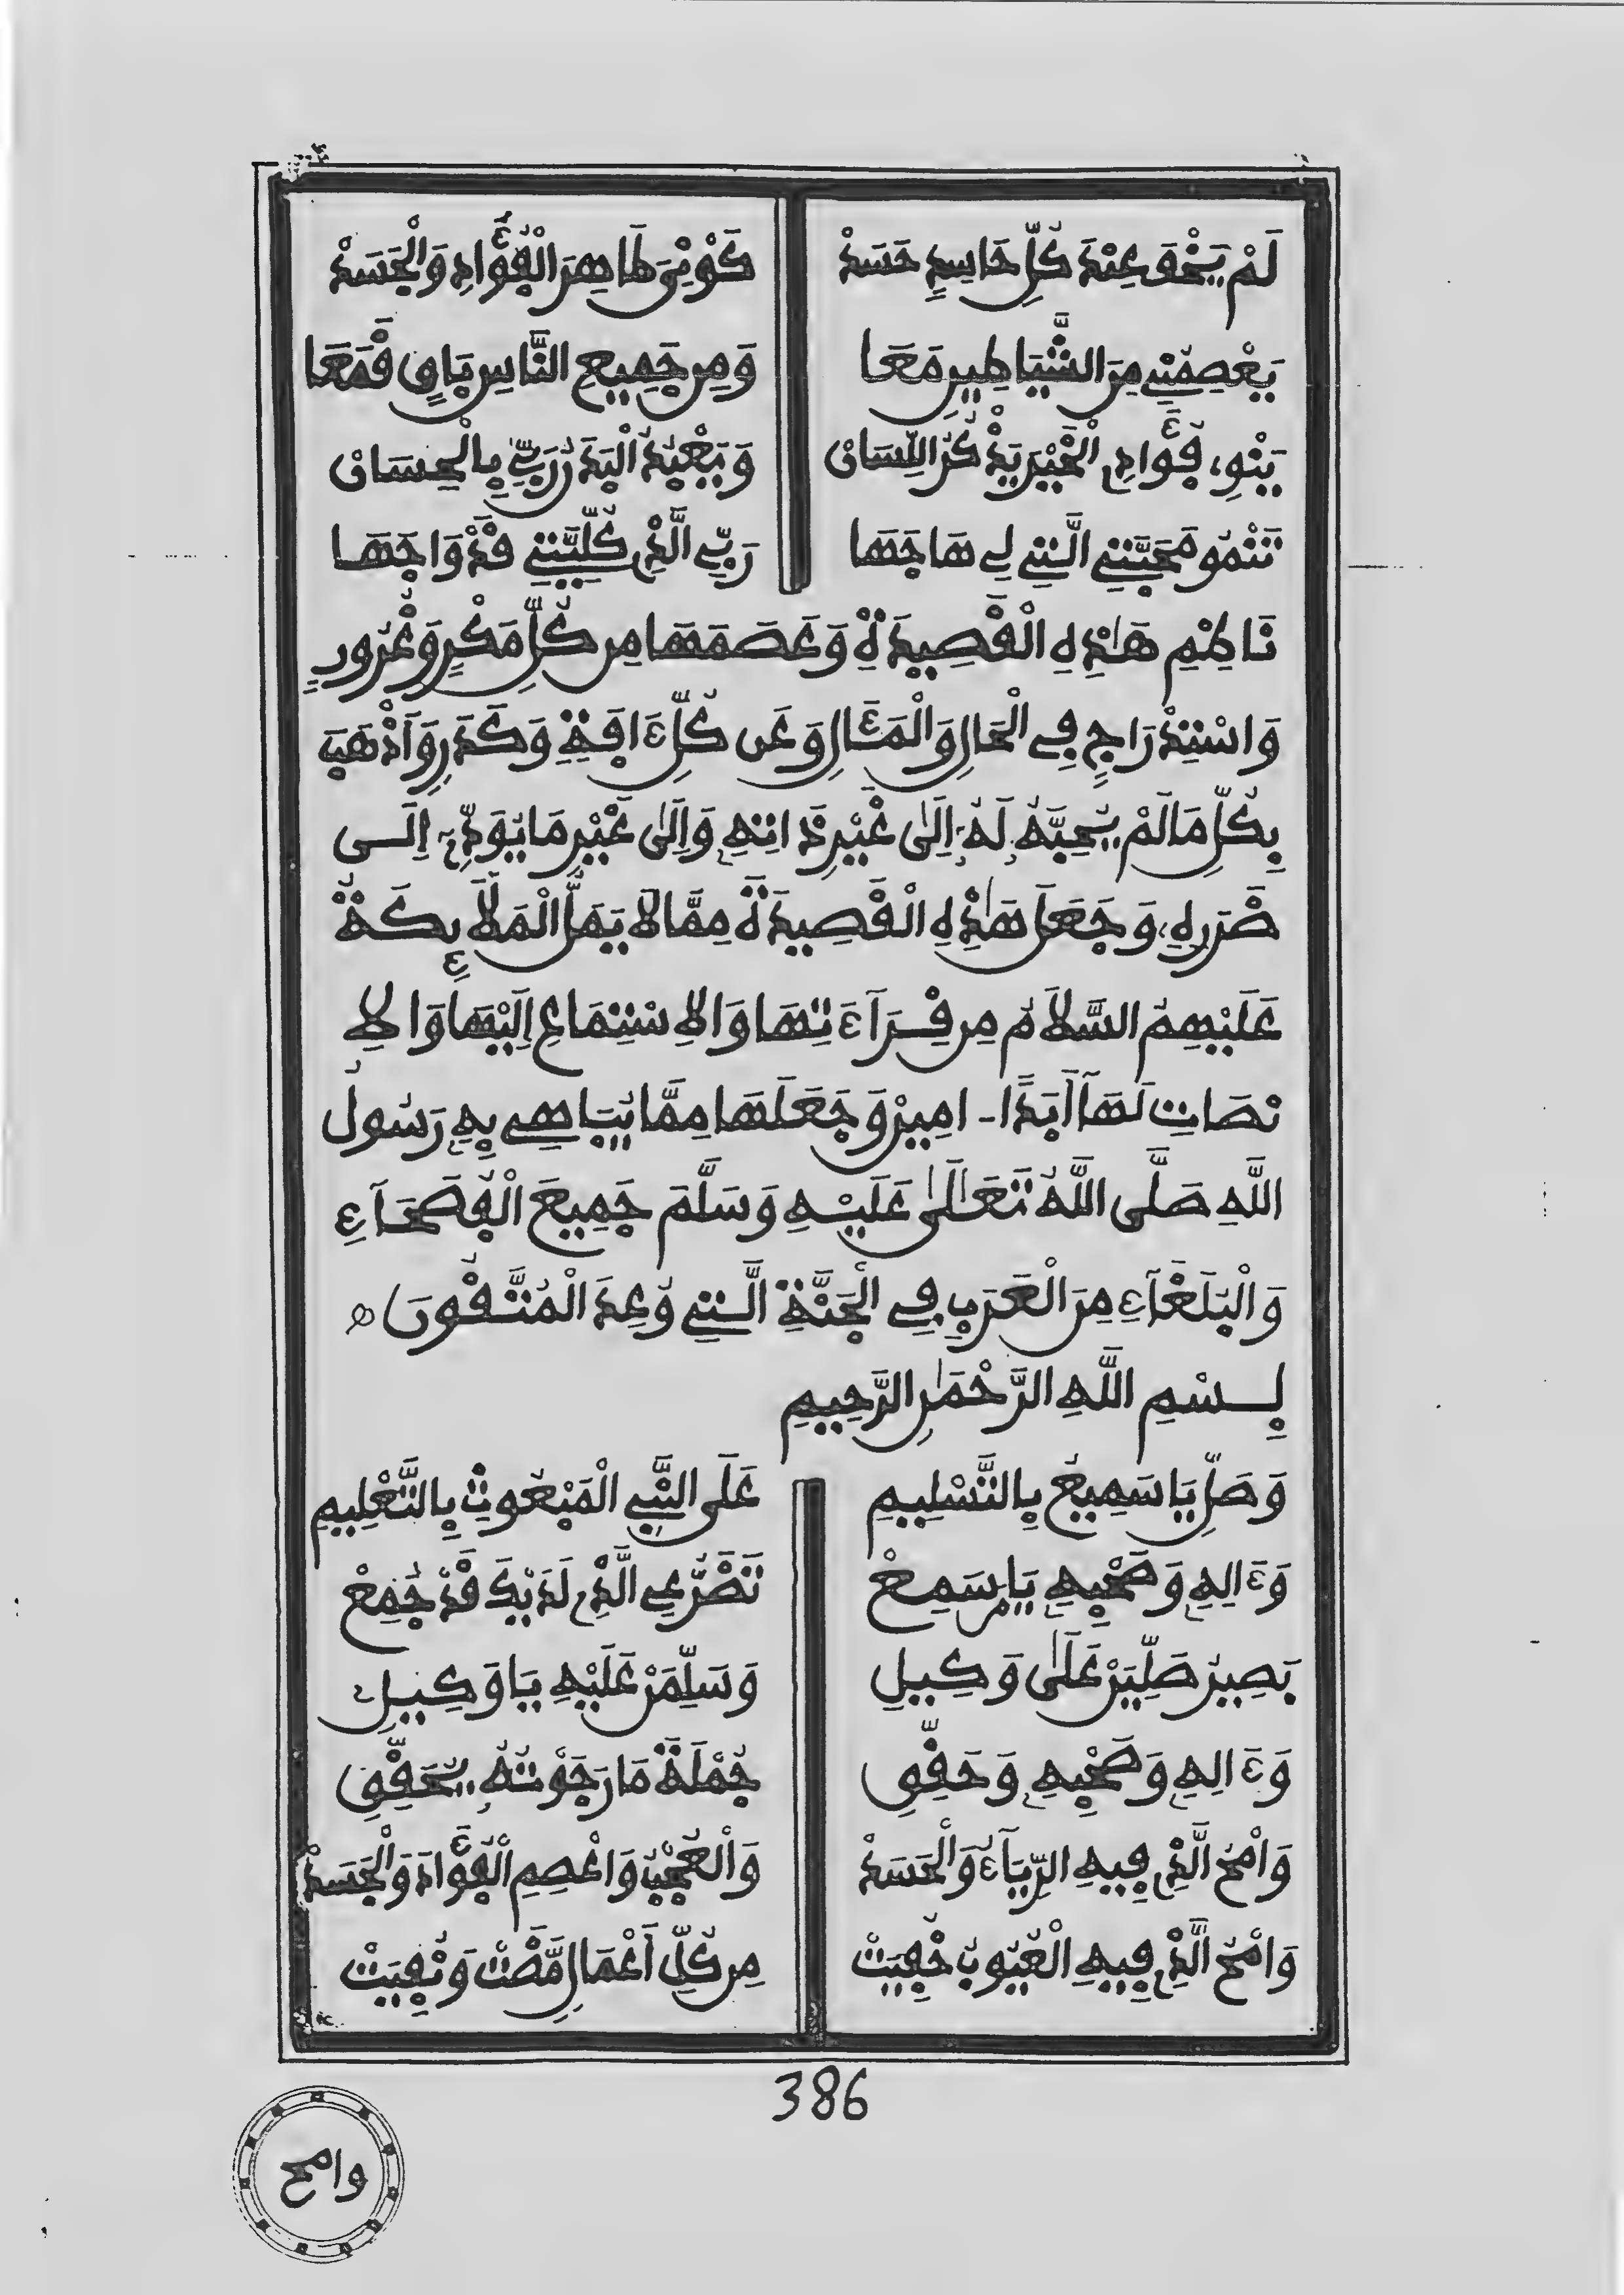 لَمْ يَخْفَ عِنْدَ كُلِّ حَاسِدٍ حَسَدْ كَوْنِيَ طَاهِرَ الْفُؤَادِ وَالْجَسَدْ
يَعْصِمُنِي مِنَ الشَّيَاطِينِ مَعَا وَمِن جَمِيعِ النَّاسِ بَاقٍ قَمَعَا
يَنْوِي فُؤَادِي الْخَيْرَ يَذْكُرُ اللِّسَانْ وَيَعْبُدُ الْيَدُ رَبِّي بِالْحِسَانْ
تَنْمُو مَحَبَّتِي الَّتِي لِي هَاجَهَا رَبِّي الَّذِي كُلِّيَّتِي قَدْ وَاجَهَا
نَاظِمِ هَٰذِهِ الْقَصِيدَةِ وَعَصَمَهَا مِن كُلِّ مَكْرٍ وَغُرُورٍ
وَاسْتِدْرَاجٍ فِي الْحَالِ وَالْمَـَٔالِ وَعَن كُلِّ ءَافَةٍ وَكَدَرٍ وَأَذْهَبَ
بِكُلِّ مَا لَمْ يُحِبَّهُ لَهُ إِلَىٰ غَيْرِ ذَاتِهِ وَإِلَىٰ غَيْرِ مَا يُوَدِّي إِلَى
ضَرَرِهِ وَجَعَلَ هَٰذِهِ الْقَصِيدَةَ مِمَّا لَا يَمَلُّ الْمَلَائِكَةُ
عَلَيْهِمُ السَّلَامُ مِن قِرَآءَتِهَا وَالِاسْتِمَاعِ إِلَيْهَا وَالِا
نْصَاتِ لَهَآ أَبَدًا - امِينْ وَجَعَلَهَا مِمَّا يُبَاهِي بِهِ رَسُولُ
اللَّهِ صَلَّى اللَّهُ تَعَالَىٰ عَلَيْهِ وَسَلَّمَ جَمِيعَ الْفُصَحَآءِ
وَالْبُلَغَآءِ مِنَ الْعَرَبِ فِي الْجَنَّةِ الَّتِي وُعِدَ الْمُتَّقُونَ
بِسْمِ اللَّهِ الرَّحْمَٰنِ الرَّحِيمِ
وَصَلِّ يَا سَمِيعُ بِالتَّسْلِيمِ عَلَى النَّبِي الْمَبْعُوثِ بِالتَّعْلِيمِ
وَءَالِهِ وَصَحْبِهِ يَا مَن سَمِعْ تَضَرُّعِي الَّذِي لَدَيْكَ قَدْ جُمِعْ
بَصِيرُ صَلِّيَنْ عَلَىٰ وَكِيلِ وَسَلِّمَنْ عَلَيْهِ يَا وَكِيلِ
وَءَالِهِ وَصَحْبِهِ وَحَقِّقِ جُمْلَةَ مَا رَجَوْتُهُ يُحَقَّقِ
وَامْحُ الَّذِي فِيهِ الرِّيَآءُ وَالْحَسَدْ وَالْعُجْبُ وَاعْصِمِ الْفُؤَادَ وَالْجَسَدْ
وَامْحُ الَّذِي فِيهِ الْعُيُوبُ خُفِيَتْ مِن كُلِّ أَعْمَالٍ مَّضَتْ وَنُفِيَتْ
386
وامح